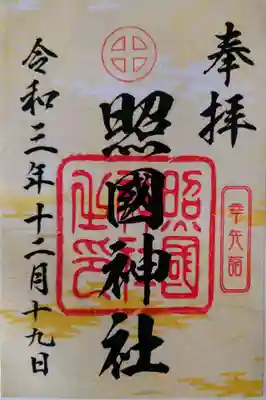 奉拝
照國神社
令和三年十二月十九日
照國神社之印